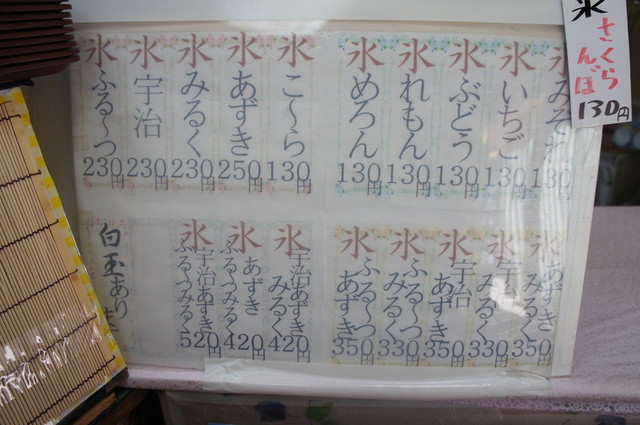 氷 さくらんぼ 130円
氷 みぞれ 130
氷 いちご 130円
氷 ぶどう 130円
氷 れもん 130円
氷 めろん 130円
氷 こ～ら 130円
氷 あずき 250円
氷 みるく 230円
氷 宇治 230円
氷 ふる～つ 230円
氷 あずき みるく 350円
氷 宇治 みるく 330円
氷 宇治 あずき 350円
氷 ふる～つ みるく 330円
氷 ふる～つ あずき 350円
氷 宇治あずき みるく 420円
氷 あずき ふるーつみるく 420円
氷 宇治あずき ふるーつみるく 520円
白玉あり